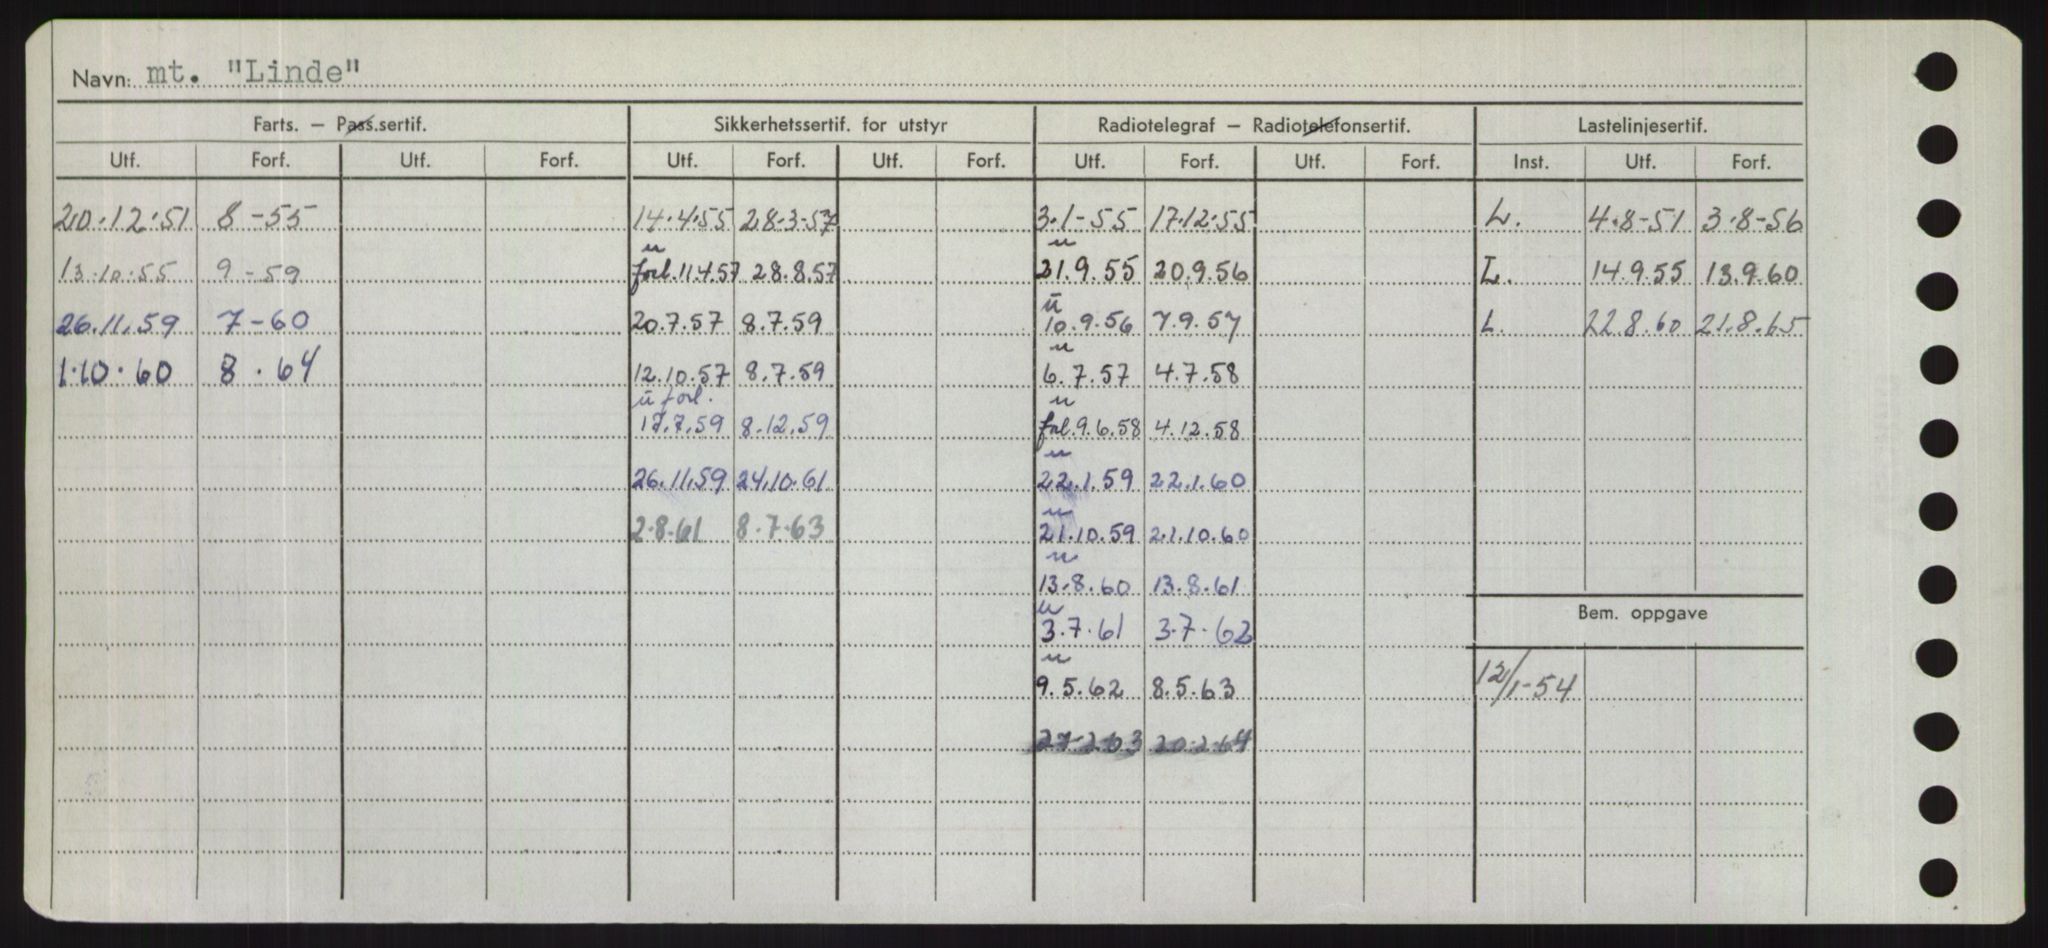 Navn: mt. "Linde"
Farts. — Pass.sertif. Sikkerhetssertif. for utstyr Radiotelegraf — Radiotelefonsertif. Lastelinjesertif.
Utf. Forf. Utf. Forf. Utf. Forf. Utf. Forf. Utf. Forf. Utf. Forf. Inst. Utf. Forf.
20.12.51 8-55 14.4.55 28.3-57 3.1-55 17.12.55 L. 4.8-51 3.8-56
u u
13.10.55 9-59 forl. 11.4.57 28.8.57 21.9.55 20.9.56 L. 14.9.55 13.9.60
u
26.11.59 7-60 20.7.57 8.7.59 10.9.56 7.9.57 L. 22.8.60 21.8.65
u
1.10.60 8.64 12.10.57 8.7.59 6.7.57 4.7.58
u forl. u
17.7.59 8.12.59 forl. 9.6.58 4.12.58
u
26.11.59 24.10.61 22.1.59 22.1.60
u
2.8.61 8.7.63 21.10.59 21.10.60
u
13.8.60 13.8.61
u Bem. oppgave
3.7.61 3.7.62
u
9.5.62 8.5.63 12/1-54
27-2-63 20.2.64